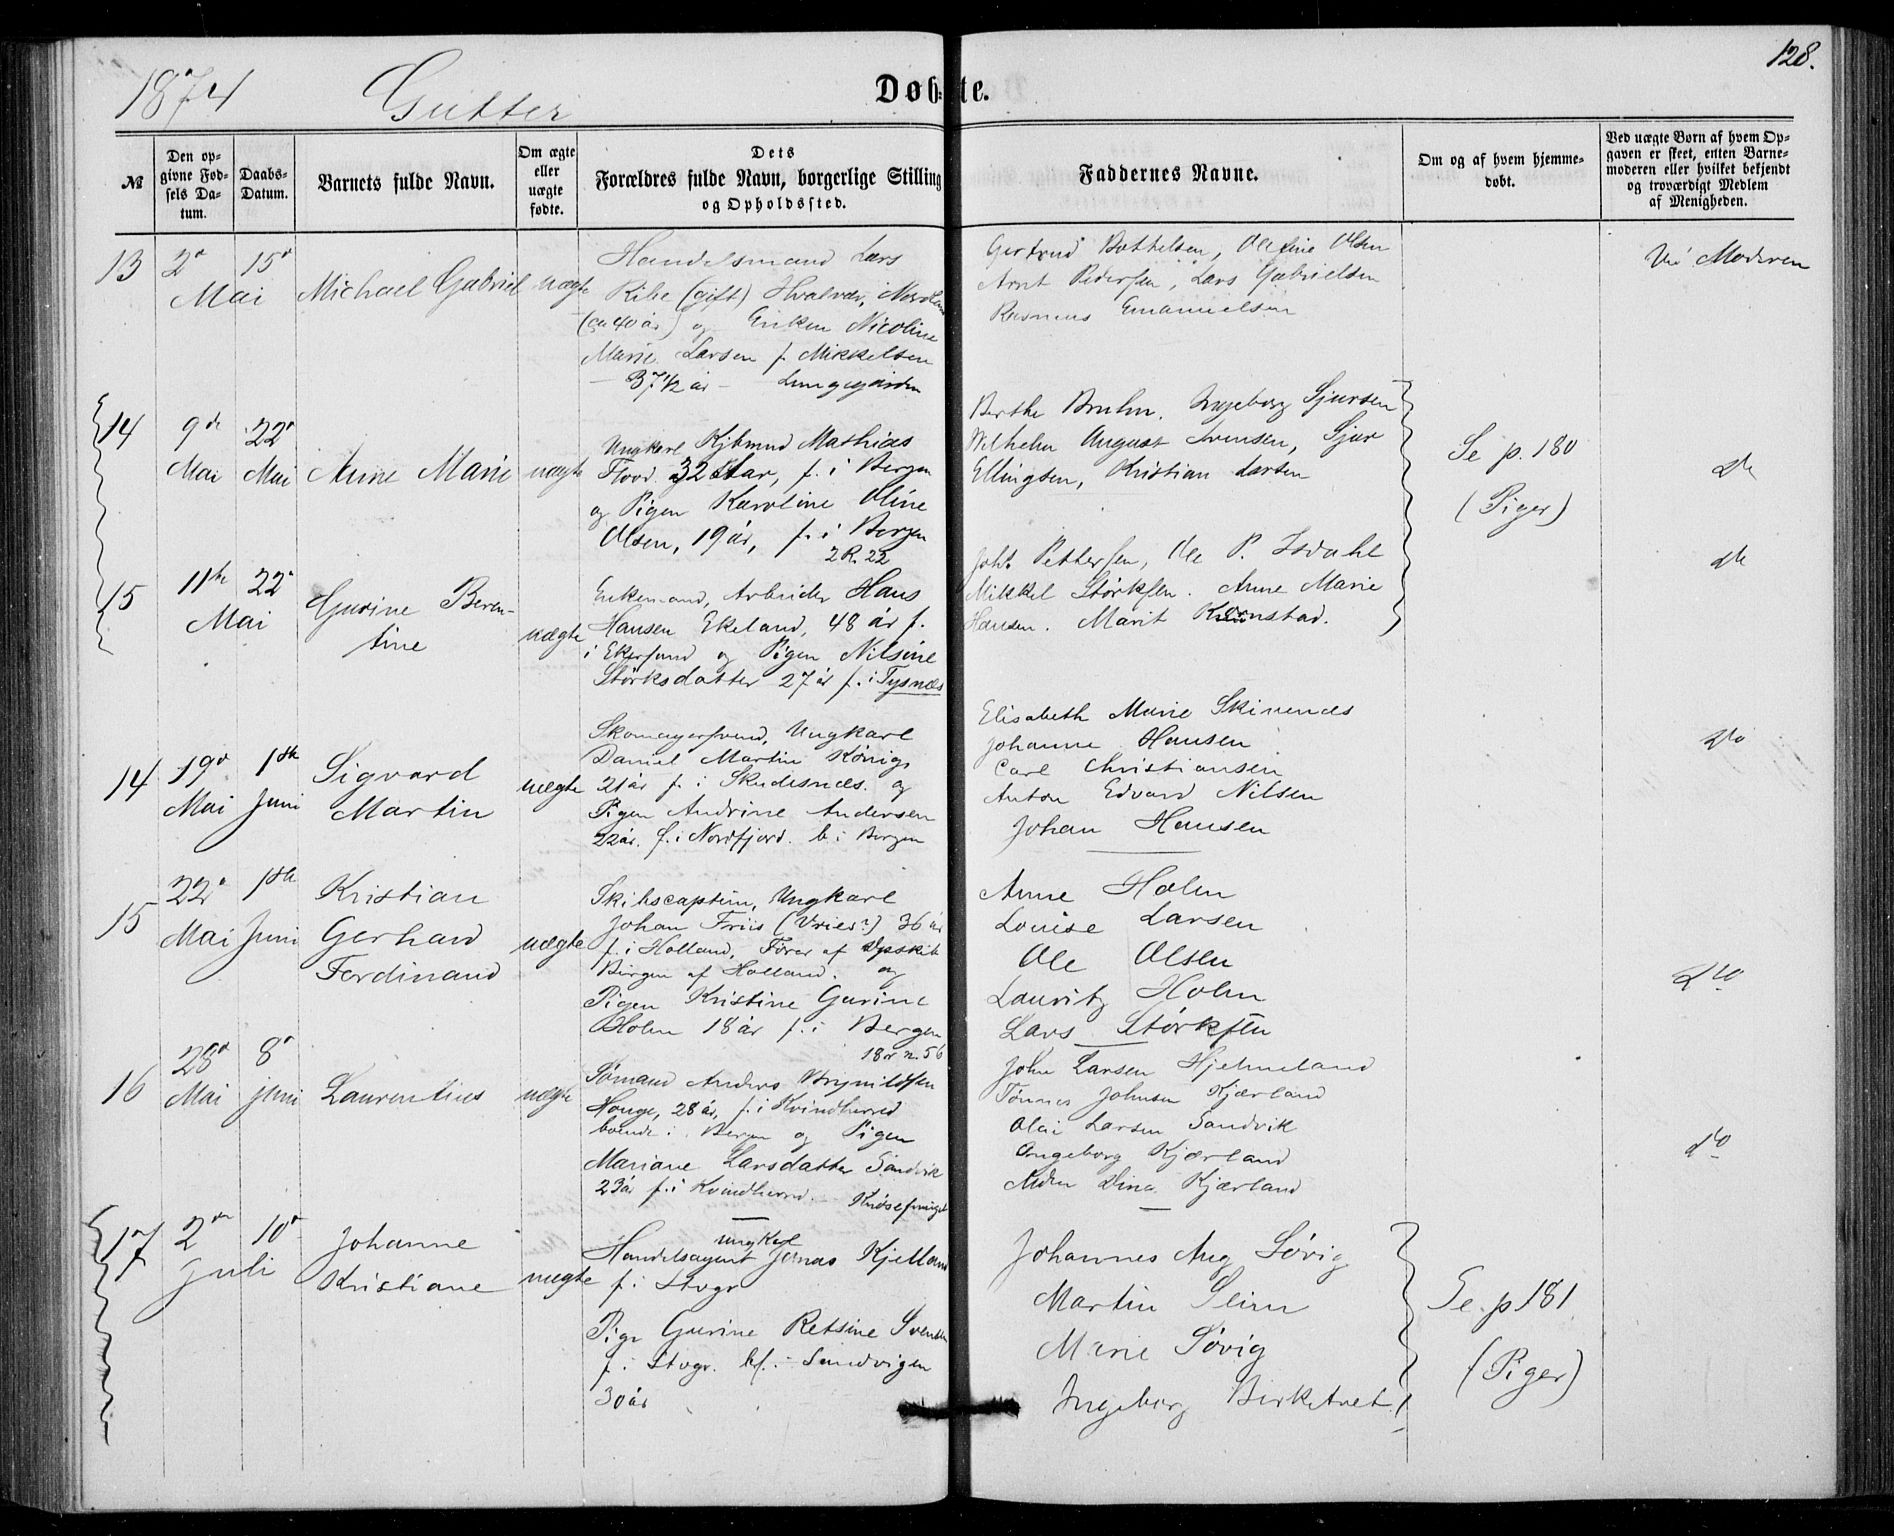 128.
1874 Gutter Døbte.
№
Den op-
givne Fød-
sels Da-
tum.
Daabs-
Datum.
Barnets fulde Navn.
Om ægte
eller
uægte
fødte.
Dets
Forældres fulde Navn, borgerlige Stilling
og Opholdssted.
Faddernes Navne.
Om og af hvem hjemme-
døbt.
Ved uægte Børn af hvem Op-
gaven er skeet, enten Barne-
moderen eller hvilket bekjendt
og troværdigt Medlem
af Menigheden.
13 2d 15d
Mai
Michael Gabriel
uægte
Handelsmand Lars
Ribe (gift) Hvalvær, Nordland
(ca 40 år) og Enken Nicoline
Marie Larsen f. Mikkelsen
— 37 1/2 år — Lungegården
Gertrud Bottelsen, Olefine Olsen
Arnt Pedersen, Lars Gabrielsen
Rasmus Emanuelsen
Ved Moderen
14 9de 22d
Mai Mai
Anne Marie
uægte
Ungkarl Kjbmnd Mathias
32 Aar, f. i Bergen
og Pigen Karoline Oline
Olsen, 19 år, f. i Bergen
2 R. 22
Berthe Bruhn. Ingeborg Sjursen
Wilhelm August Arensen, Sjur
Ellingsen, Kristian Larsen
Se p. 180
(Piger)
do
15 11te 22d
Mai
Gurine Beren-
tine
uægte
Enkemand, Arbeider Hans
Hansen Ekeland, 48 år f.
i Ekersund og Pigen Nilsine
Størksdatter 27 år f. i Tysnes
Joh. Pettersen, Ole P. Isdahl
Mikkel Størksen. Anne Marie
Hansen. Marit
do
14 19d 1ste
Mai Juni
Sigvard
Martin
uægte
Skomagersvend, Ungkarl
Daniel Martin Königs
21 år f. i Skudesnæs. og
Pigen Andrine Andersen
22 år. f. i Nordfjord. b. i Bergen
Elisabeth Marie Skinnenes
Johanne Hansen
Carl Christiansen
Anton Edvard Nilsen
Johan Hansen
do
15 22d 1ste
Mai Juni
Kristian
Gerhard
Ferdinand
uægte
Skibscaptein, Ungkarl
Johan Friis (Vries?) 36 år
f. i Holland, Fører af Dpskib
Bürgen af Holland. og
Pigen Kristine Gurine
Holm 18 år f. i Bergen
Anne Holm
Louise Larsen
Ole Olsen
Lauritz Holm
Lars Størksen
do
16 28d 8d
Mai juni
Laurentius
uægte
18 n. 56
Sømand Anders Brynildsen
Houge, 28 år, f. i Kvindherred
boende i Bergen og Pigen
Mariane Larsdatter Sandvik
23 år f. i Kvindherred.
John Larsen Hjelmeland
Tønnes Johnsen Kjærland
Olai Larsen Sandvik
Ingeborg Kjærland
Dina Kjærland
do
17 2den 10d
Juli
Johanne
Kristiane
uægte
ungkarl
Handelsagent Jonas Kjelland
f. i Stvgr
Pige Gurine Retsine Svendsen
f. i Stvgr. bf. i Sandvigen
30 år
Johannes Aug Søvig
Martin Slein
Marie Søvig
Ingeborg Birketvet
Se p. 181
(Piger)